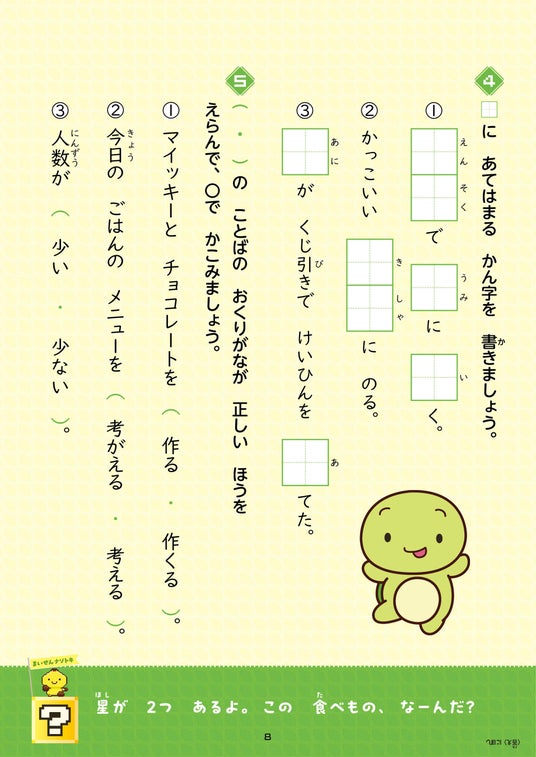 4 □に あてはまる かん字を 書きましょう。
か
① □□で □に □く。
えんそく
うみ
い
② かっこいい □□に のる。
きしゃ
③ □が くじ引きで けいひんを □てた。
あに
び
あ
5 （ ・ ）の ことばの おくりがなが 正しい ほうを
えらんで、○で かこみましょう。
① マイッキーと チョコレートを （ 作る ・ 作くる ）。
② 今日の ごはんの メニューを （ 考がえる ・ 考える ）。
きょう
③ 人数が （ 少い ・ 少ない ）。
にんずう
まいせんナゾトキ
?
星が 2つ あるよ。この 食べもの、なーんだ?
ほし
た
8